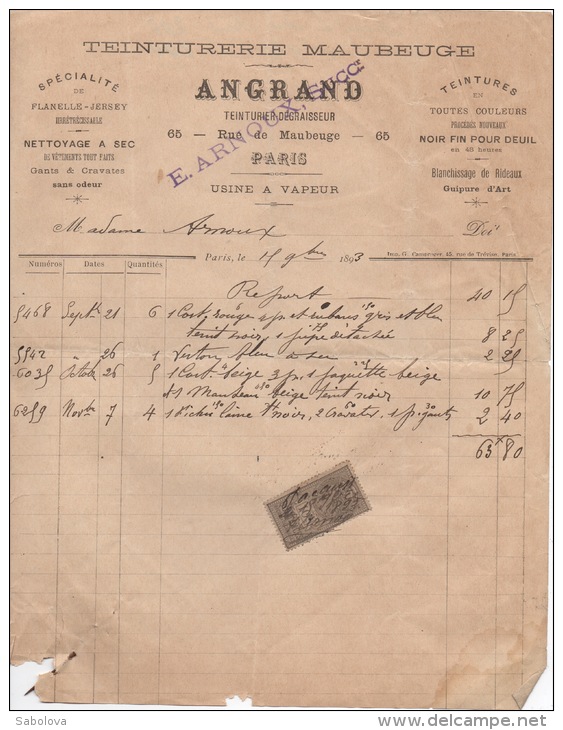 TEINTURERIE MAUBEUGE
ANGRAND
TEINTURIER-DÉGRAISSEUR
65 — Rue de Maubeuge — 65
PARIS
USINE A VAPEUR
E. ARNOUX, SUCCr
SPÉCIALITÉ
DE
FLANELLE-JERSEY
IRRÉTRÉCISSABLE
NETTOYAGE A SEC
DE VÊTEMENTS TOUT FAITS
Gants & Cravates
sans odeur
TEINTURES
EN
TOUTES COULEURS
PROCÉDÉS NOUVEAUX
NOIR FIN POUR DEUIL
en 48 heures
Blanchissage de Rideaux
Guipure d'Art
Madame Arnoux Doit
Paris, le 15 9bre 1893
Imp. G. 45, rue de Trévise, Paris.
Numéros Dates Quantités
Report 40 15
5468 Septb 21 6 1 Cost. rouge 2 p. et rubans 150 gris et bleu
teint noir, 1 jupe 175 détachée 8 25
5542 " 26 1 Veston bleu à sec 2 25
6035 Octob 26 5 1 Cost. beige 3 p. 1 jaquette beige
& 1 Manteau beige teint noir 10 75
6259 Novbr 7 4 1 Fichu laine 150 noir, 2 Cravates, 1 p. gants 30 2 40
63 80
Sabolova
www.delcampe.net